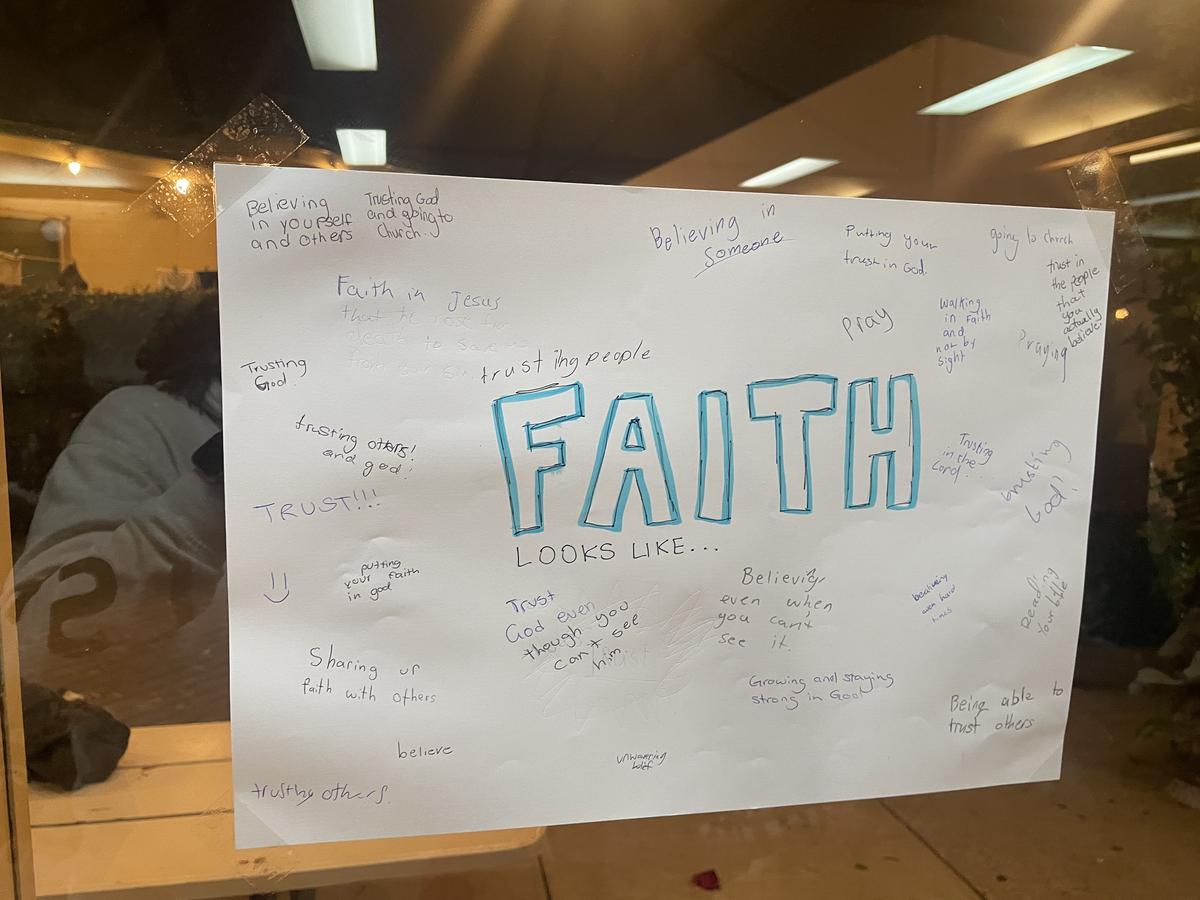 Believing
in yourself
and others
Trusting God
and going to
Church.
Believing in
Someone
Putting your
trust in God.
going to church
trust in
the people
that
you
actually
believe.
Faith in Jesus
that he rose
to save
from our
pray
Walking
in Faith
and
not by
sight
Praying
Trusting
God.
trusting people
FAITH
LOOKS LIKE...
trusting others!
and god!
TRUST!!!
Trusting
in the
Lord!
trusting
God!
putting
your faith
in god
Trust
God even
though you
can't see
him
Believing
even when
you can't
see it.
believing
even hard
times
Reading
Your bible
Sharing ur
faith with others
Growing and staying
strong in God
Being able to
trust others
believe
unwavering
trusting others.